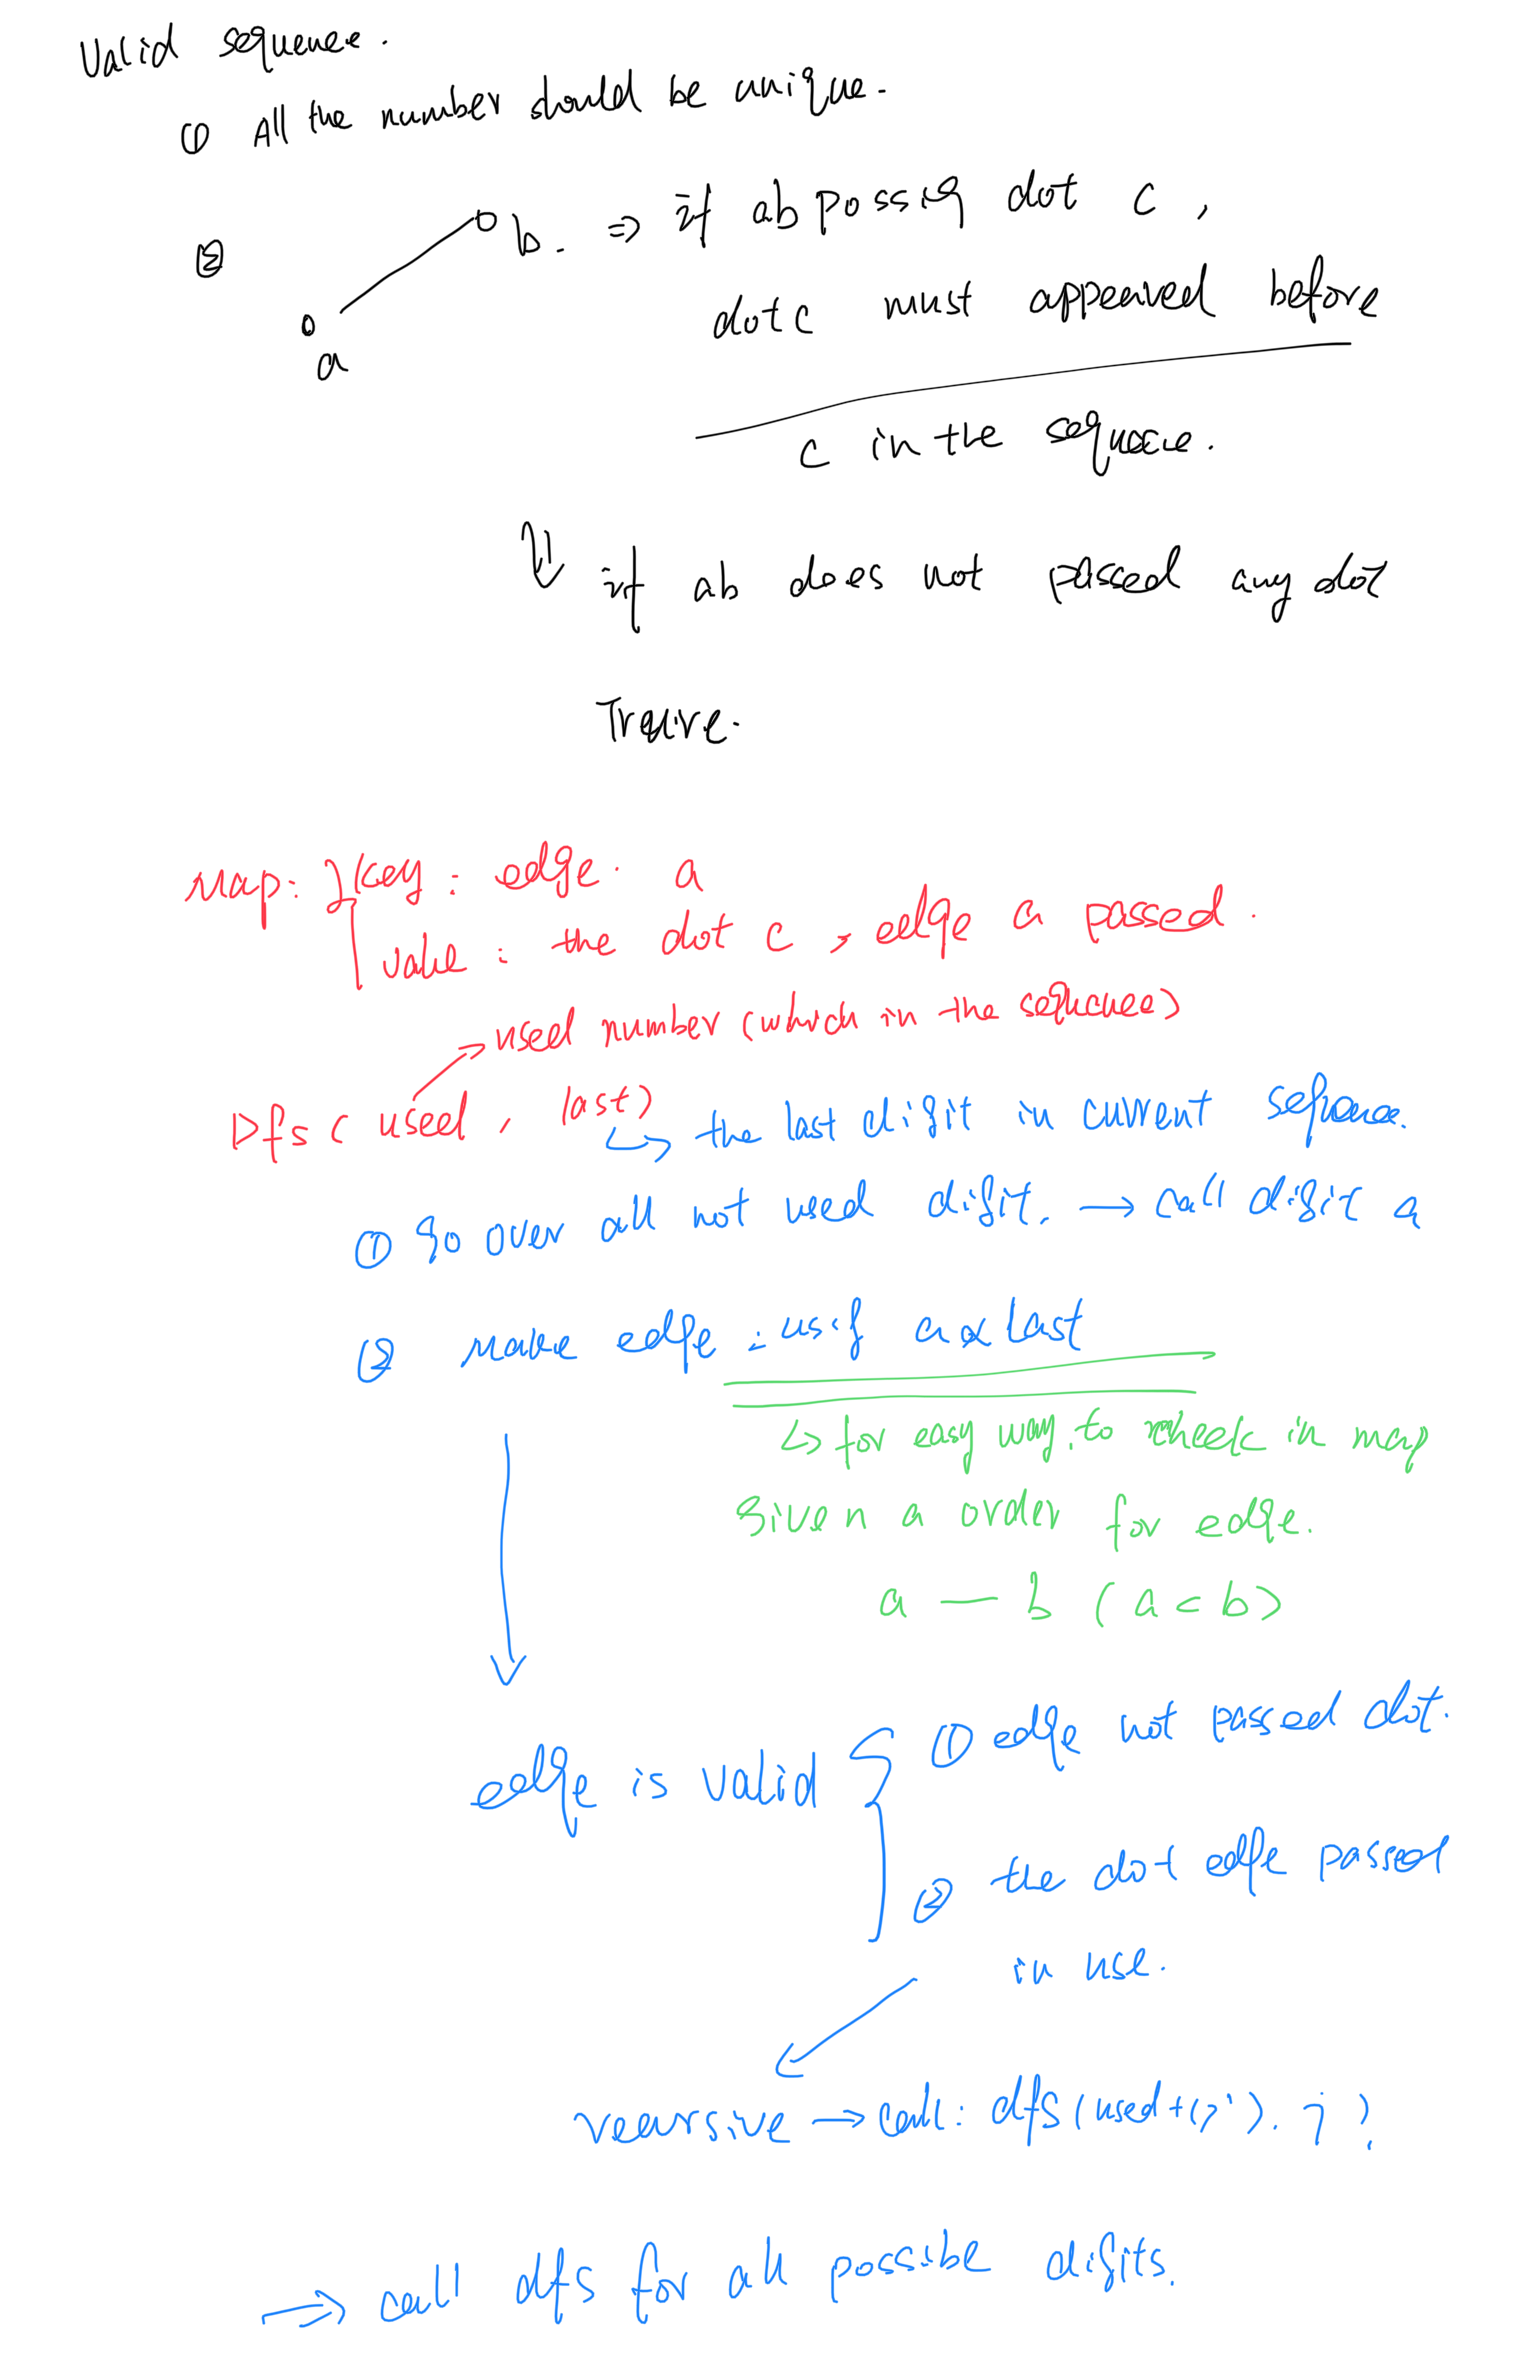 Valid sequence.
① All the number should be unique.
② a b. ⇒ if ab passing dot c,
dot c must appeared before
c in the sequence.
⇓ if ab does not passed any dot
map: { key: edge. a
value: the dot c, edge a passed.
used number (which in the sequence)
Dfs ( used, last)
↳ the last digit in current sequence.
① go over all not used digit. → call digit a
② make edge: using a & last
↳ for easy way to check in map
given a order for edge.
a — b (a < b)
edge is valid { ① edge not passed dot.
② the dot edge passed
in use.
recursive → call: dfs(used+(j), j)
⇒ call dfs for all possibe digits.